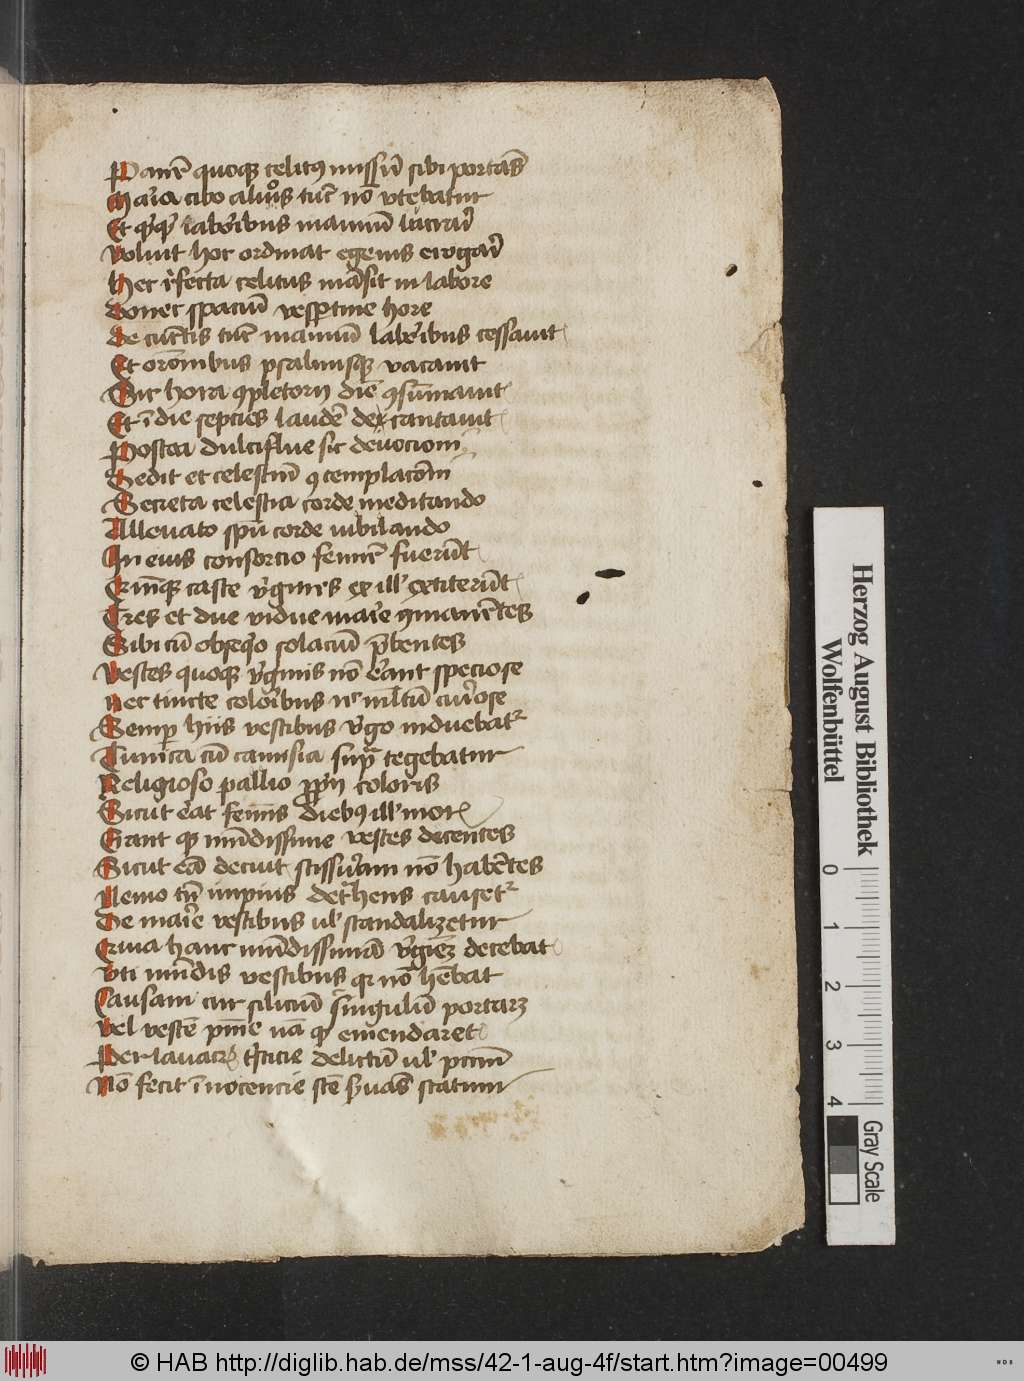 Panē quoqꝫ celitꝰ missū sibi portās
Maria cibo alioͦs tūc nō vtebatur
Et q̄qꝫ laboribus manuū lucrari
Voluit hoc ordinat egenis erogari
Hec refecta celitus māsit in labore
Donec spaciū vesp̄tine hore
De cūctis tūc manuū laboribus cessauit
Et orōnibus psalmisqꝫ vacauit
Sic hora ꝯpletorij diē ꝯsūmauit
Et ī die sepcies laudē decantauit
Postea dulciflue sic deuocioni
Sedit et celestiū ꝯtemplacōni
Secreta celestia corde meditando
Alleuato spū corde iubilando
In eius consorcio femine fuerūt
Quīqꝫ caste v̓gines q̄ ill' extiterūt
Tres et due vidue marie ꝯmanētes
Sibi cū obseqͦo solaciū p̄bentes
Vestes quoqꝫ v̓ginis nō erant speciose
Nec tincte coloribus nec multū curiose
Semp hiis vestibus v̓go induebatr
Tunica cū camisia supra tegebatur
Religioso pallio pprij coloris
Sicut erat feminis diebꝫ ill' moris
Erant qꝫ mūdissime vestes decentes
Sicut eā decuit scissuram nō habētes
Nemo tn̄ impius det̓hens causetr
De marie vestibus ul' scandalizetur
Quia hanc mūdissimā v̓ginē decebat
Vti mūdis vestibus qr nō hēbat
Causam cur siliciū singulū portarꝫ
Vel vestē pnīe nā qꝫ emendaret
Per lauacrū delictū ul' pctm̄
Nō fecit īnocencie stē s̓uās statum
Herzog August Bibliothek
Wolfenbüttel
0 1 2 3 4
Gray Scale
© HAB http://diglib.hab.de/mss/42-1-aug-4f/start.htm?image=00499